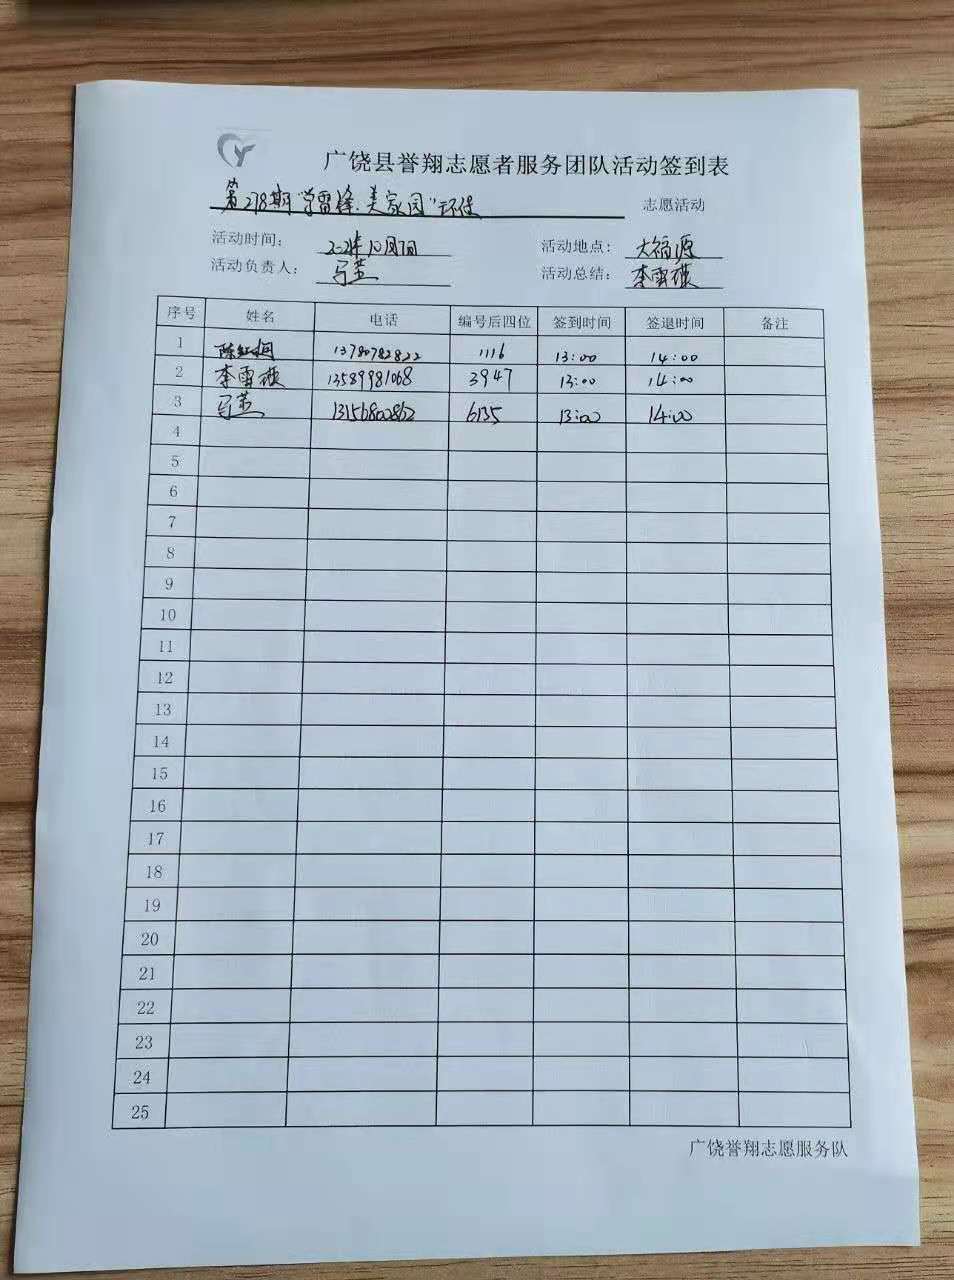 广饶县誉翔志愿者服务团队活动签到表
第218期"学雷锋·美家园"环保 志愿活动
活动时间: 活动地点: 大福源
活动负责人: 马燕 活动总结: 李雪燕
序号 姓名 电话 编号后四位 签到时间 签退时间 备注
1 13780782822 1116 13:00 14:00
2 李雪燕 13589981068 3947 13:00 14:00
3 马燕 13156800862 6135 13:00 14:00
4
5
6
7
8
9
10
11
12
13
14
15
16
17
18
19
20
21
22
23
24
25
广饶誉翔志愿服务队